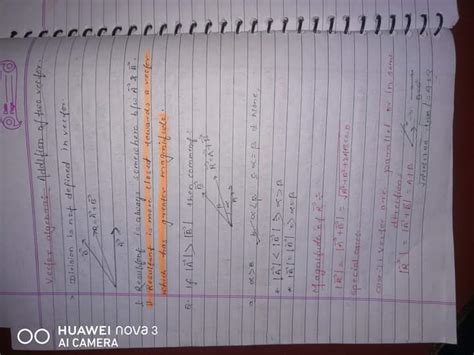 Vector algebra:- Addition of two vector.
> Division is not defined in vector.
B⃗
R⃗ = A⃗ + B⃗
A⃗
1. Resultant is always somewhere b/w A⃗ & B⃗.
2. Resultant is more closed towards a vector
which has greater magnitude.
Q. If |A⃗| > |B⃗| then comment:
B⃗
R⃗ = A⃗ + B⃗
a. α>β b. α<β c. α=β d. None.
* |A⃗| < |B⃗| ⇒ α>β
* |A⃗| = |B⃗| ⇒ α=β
Magnitude of R⃗ :-
|R⃗| = |A⃗+B⃗| =
Special case
Case 1: vector are parallel or in same
direction:
|R⃗| = |A⃗+B⃗| = A+B
HUAWEI nova 3
AI CAMERA